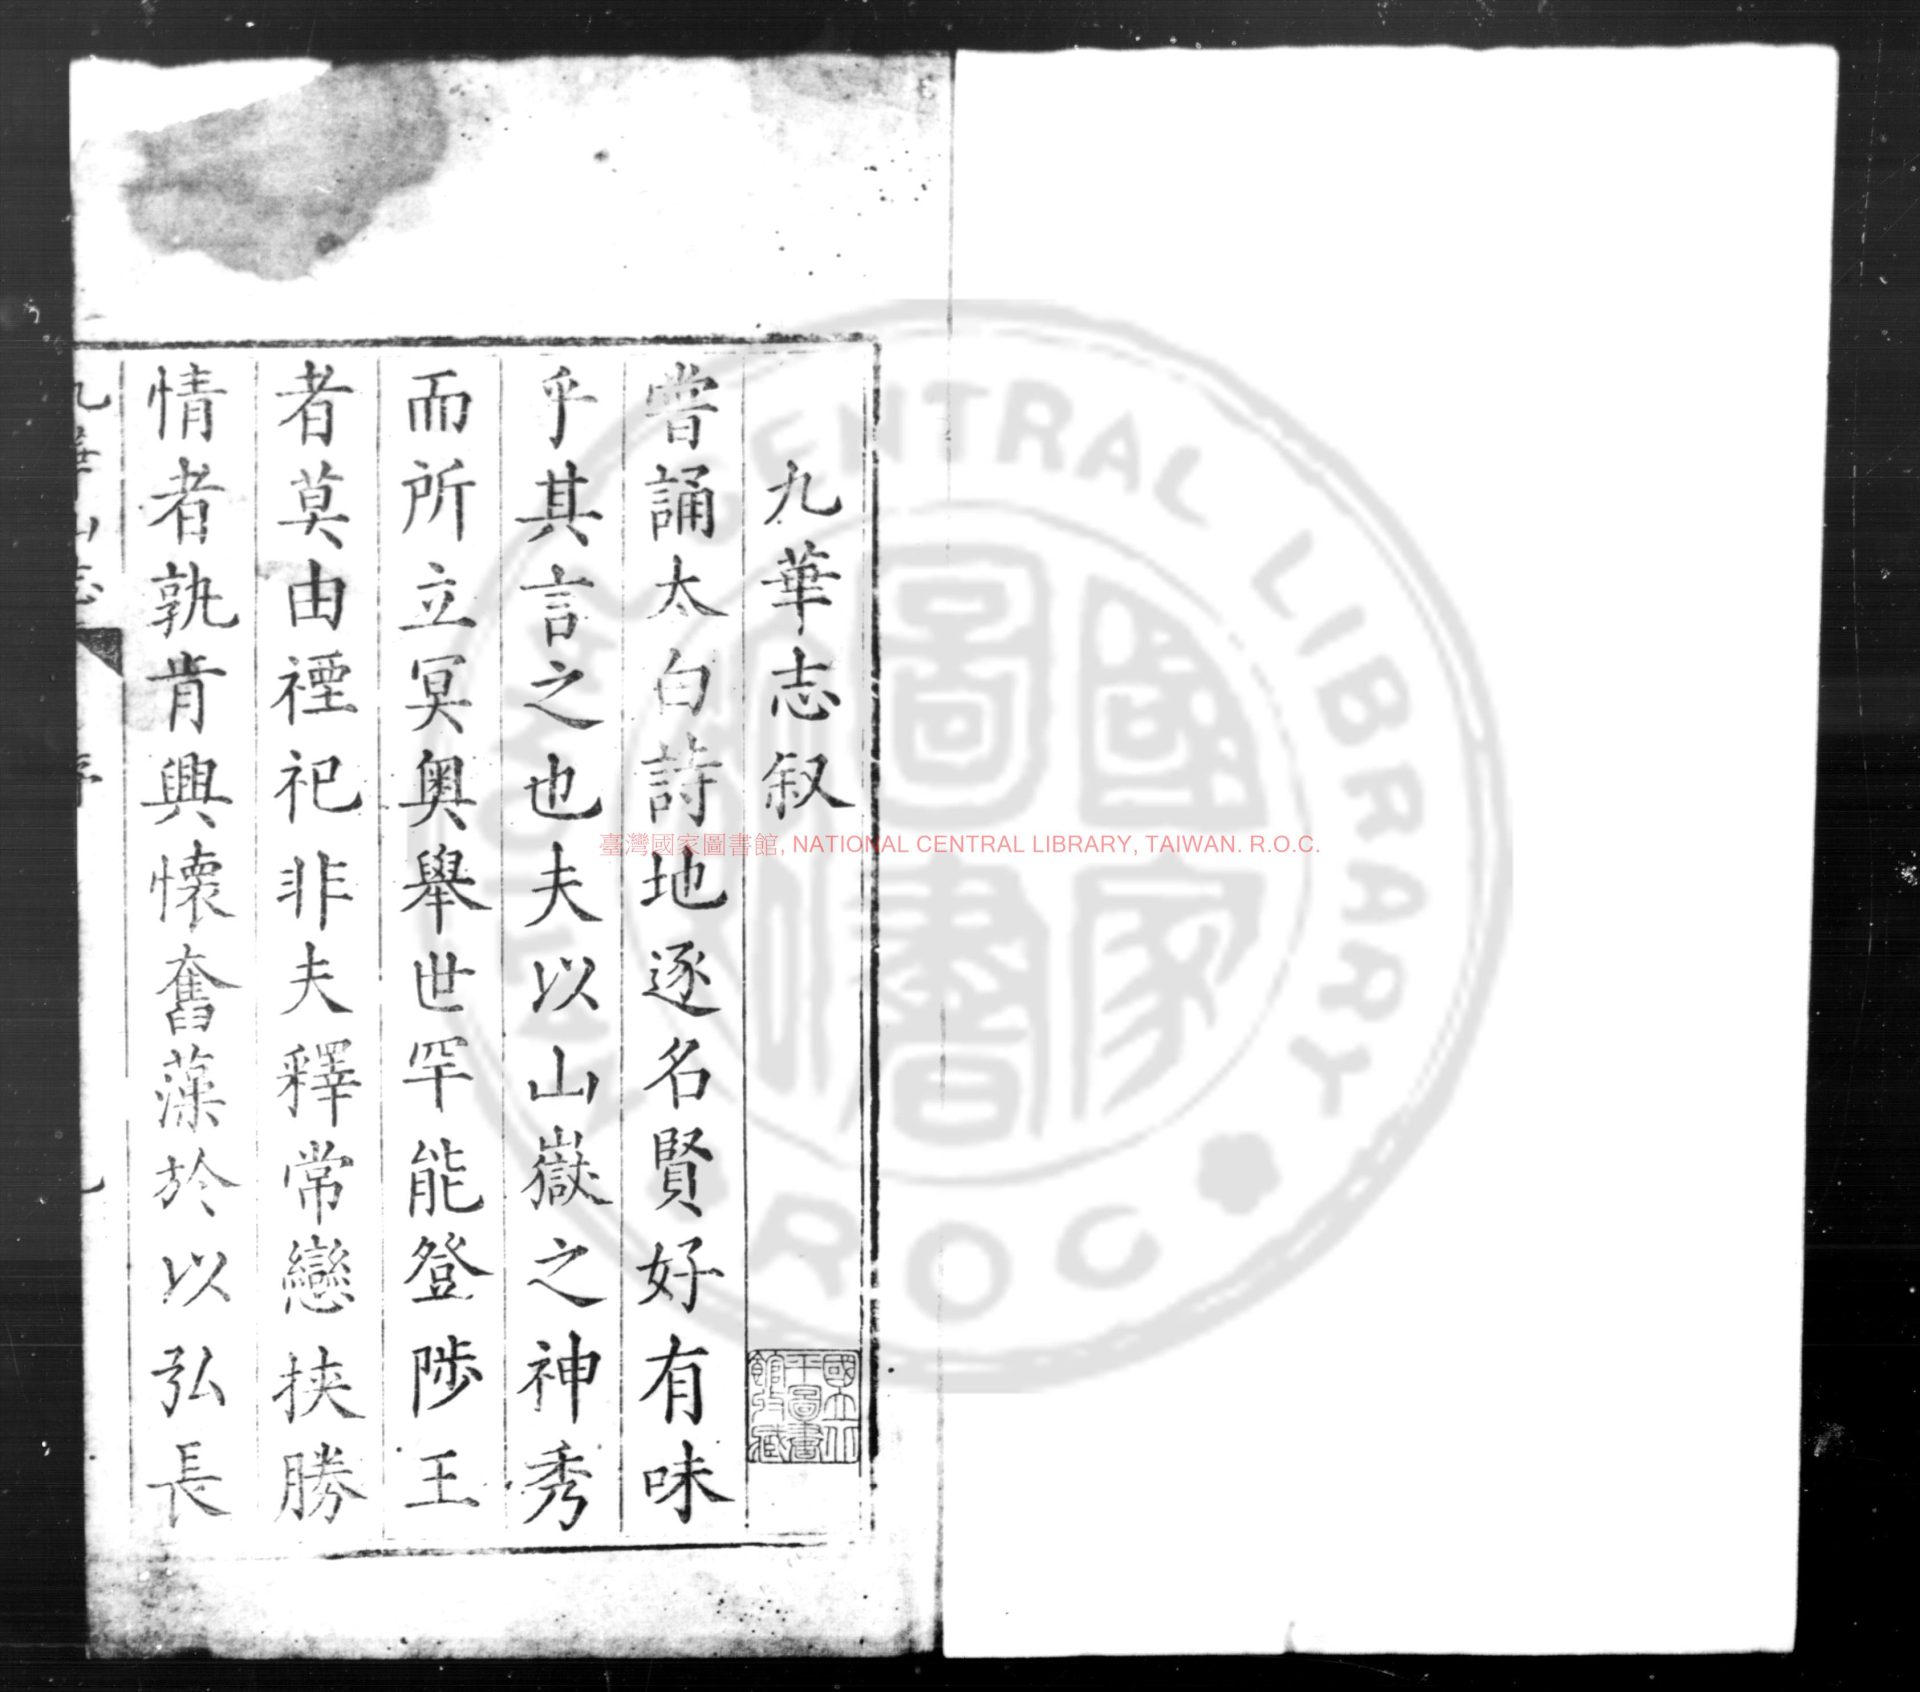 九華志叙
嘗誦太白詩地逐名賢好有味
乎其言之也夫以山嶽之神秀
而所立冥奧舉世罕能登陟王
者莫由禋祀非夫釋常戀挾勝
情者孰肯興懷奮藻於以弘長
九華山志
序
國立北
平圖書
館收藏
臺灣國家圖書館, NATIONAL CENTRAL LIBRARY, TAIWAN. R.O.C.
NATIONAL CENTRAL LIBRARY
R O C
國家
圖書